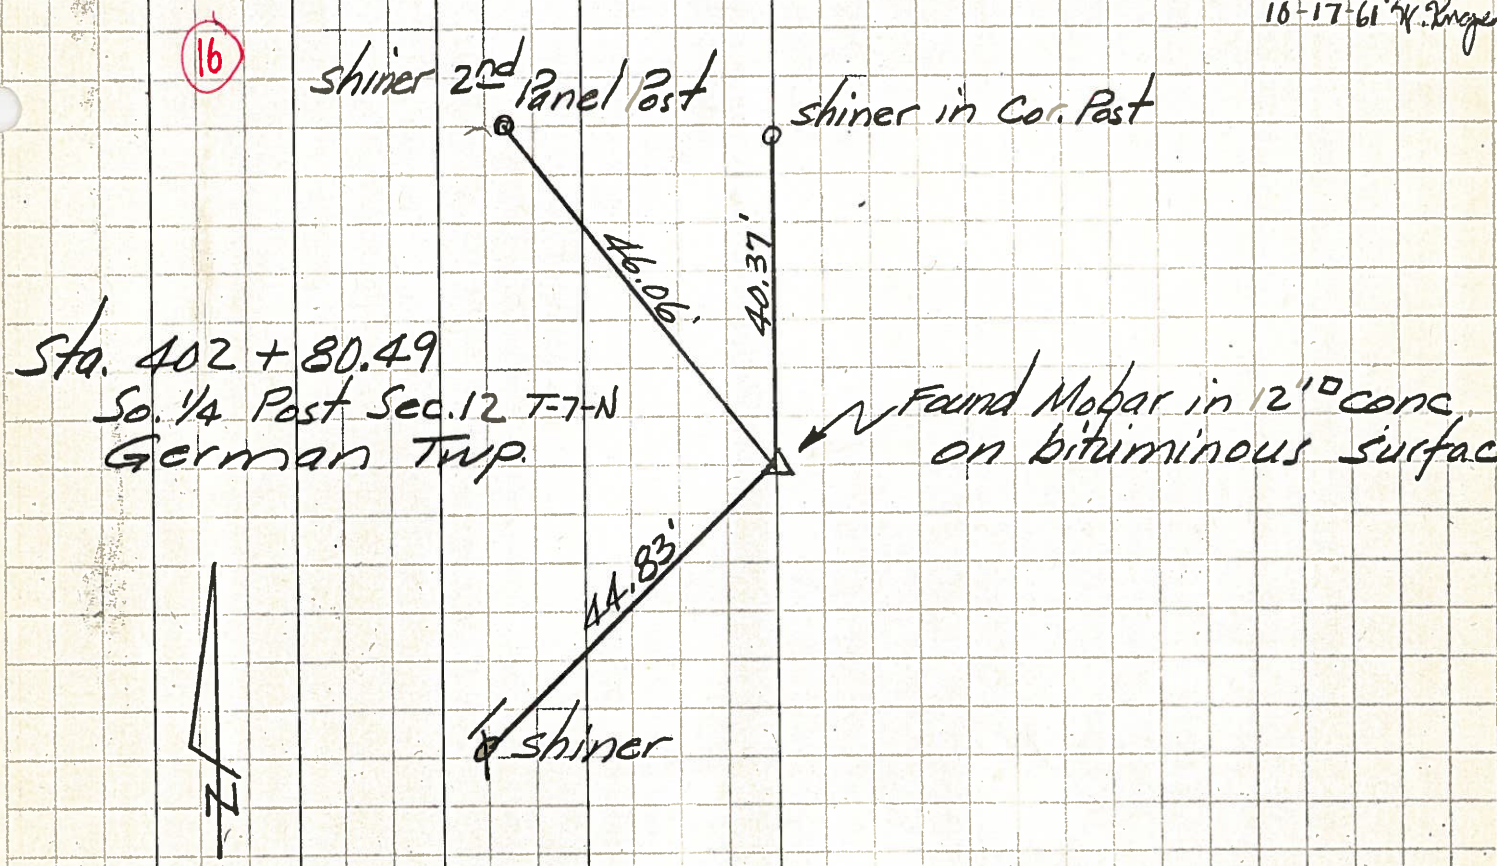 10-17-61
16
shiner 2nd Panel Post
shiner in Cor. Post
46.06'
40.37'
Sta. 402 + 80.49
So. 1/4 Post Sec. 12 T-7-N
German Twp.
Found Mobar in 12"□ conc
on bituminous surfac
44.83'
shiner
N